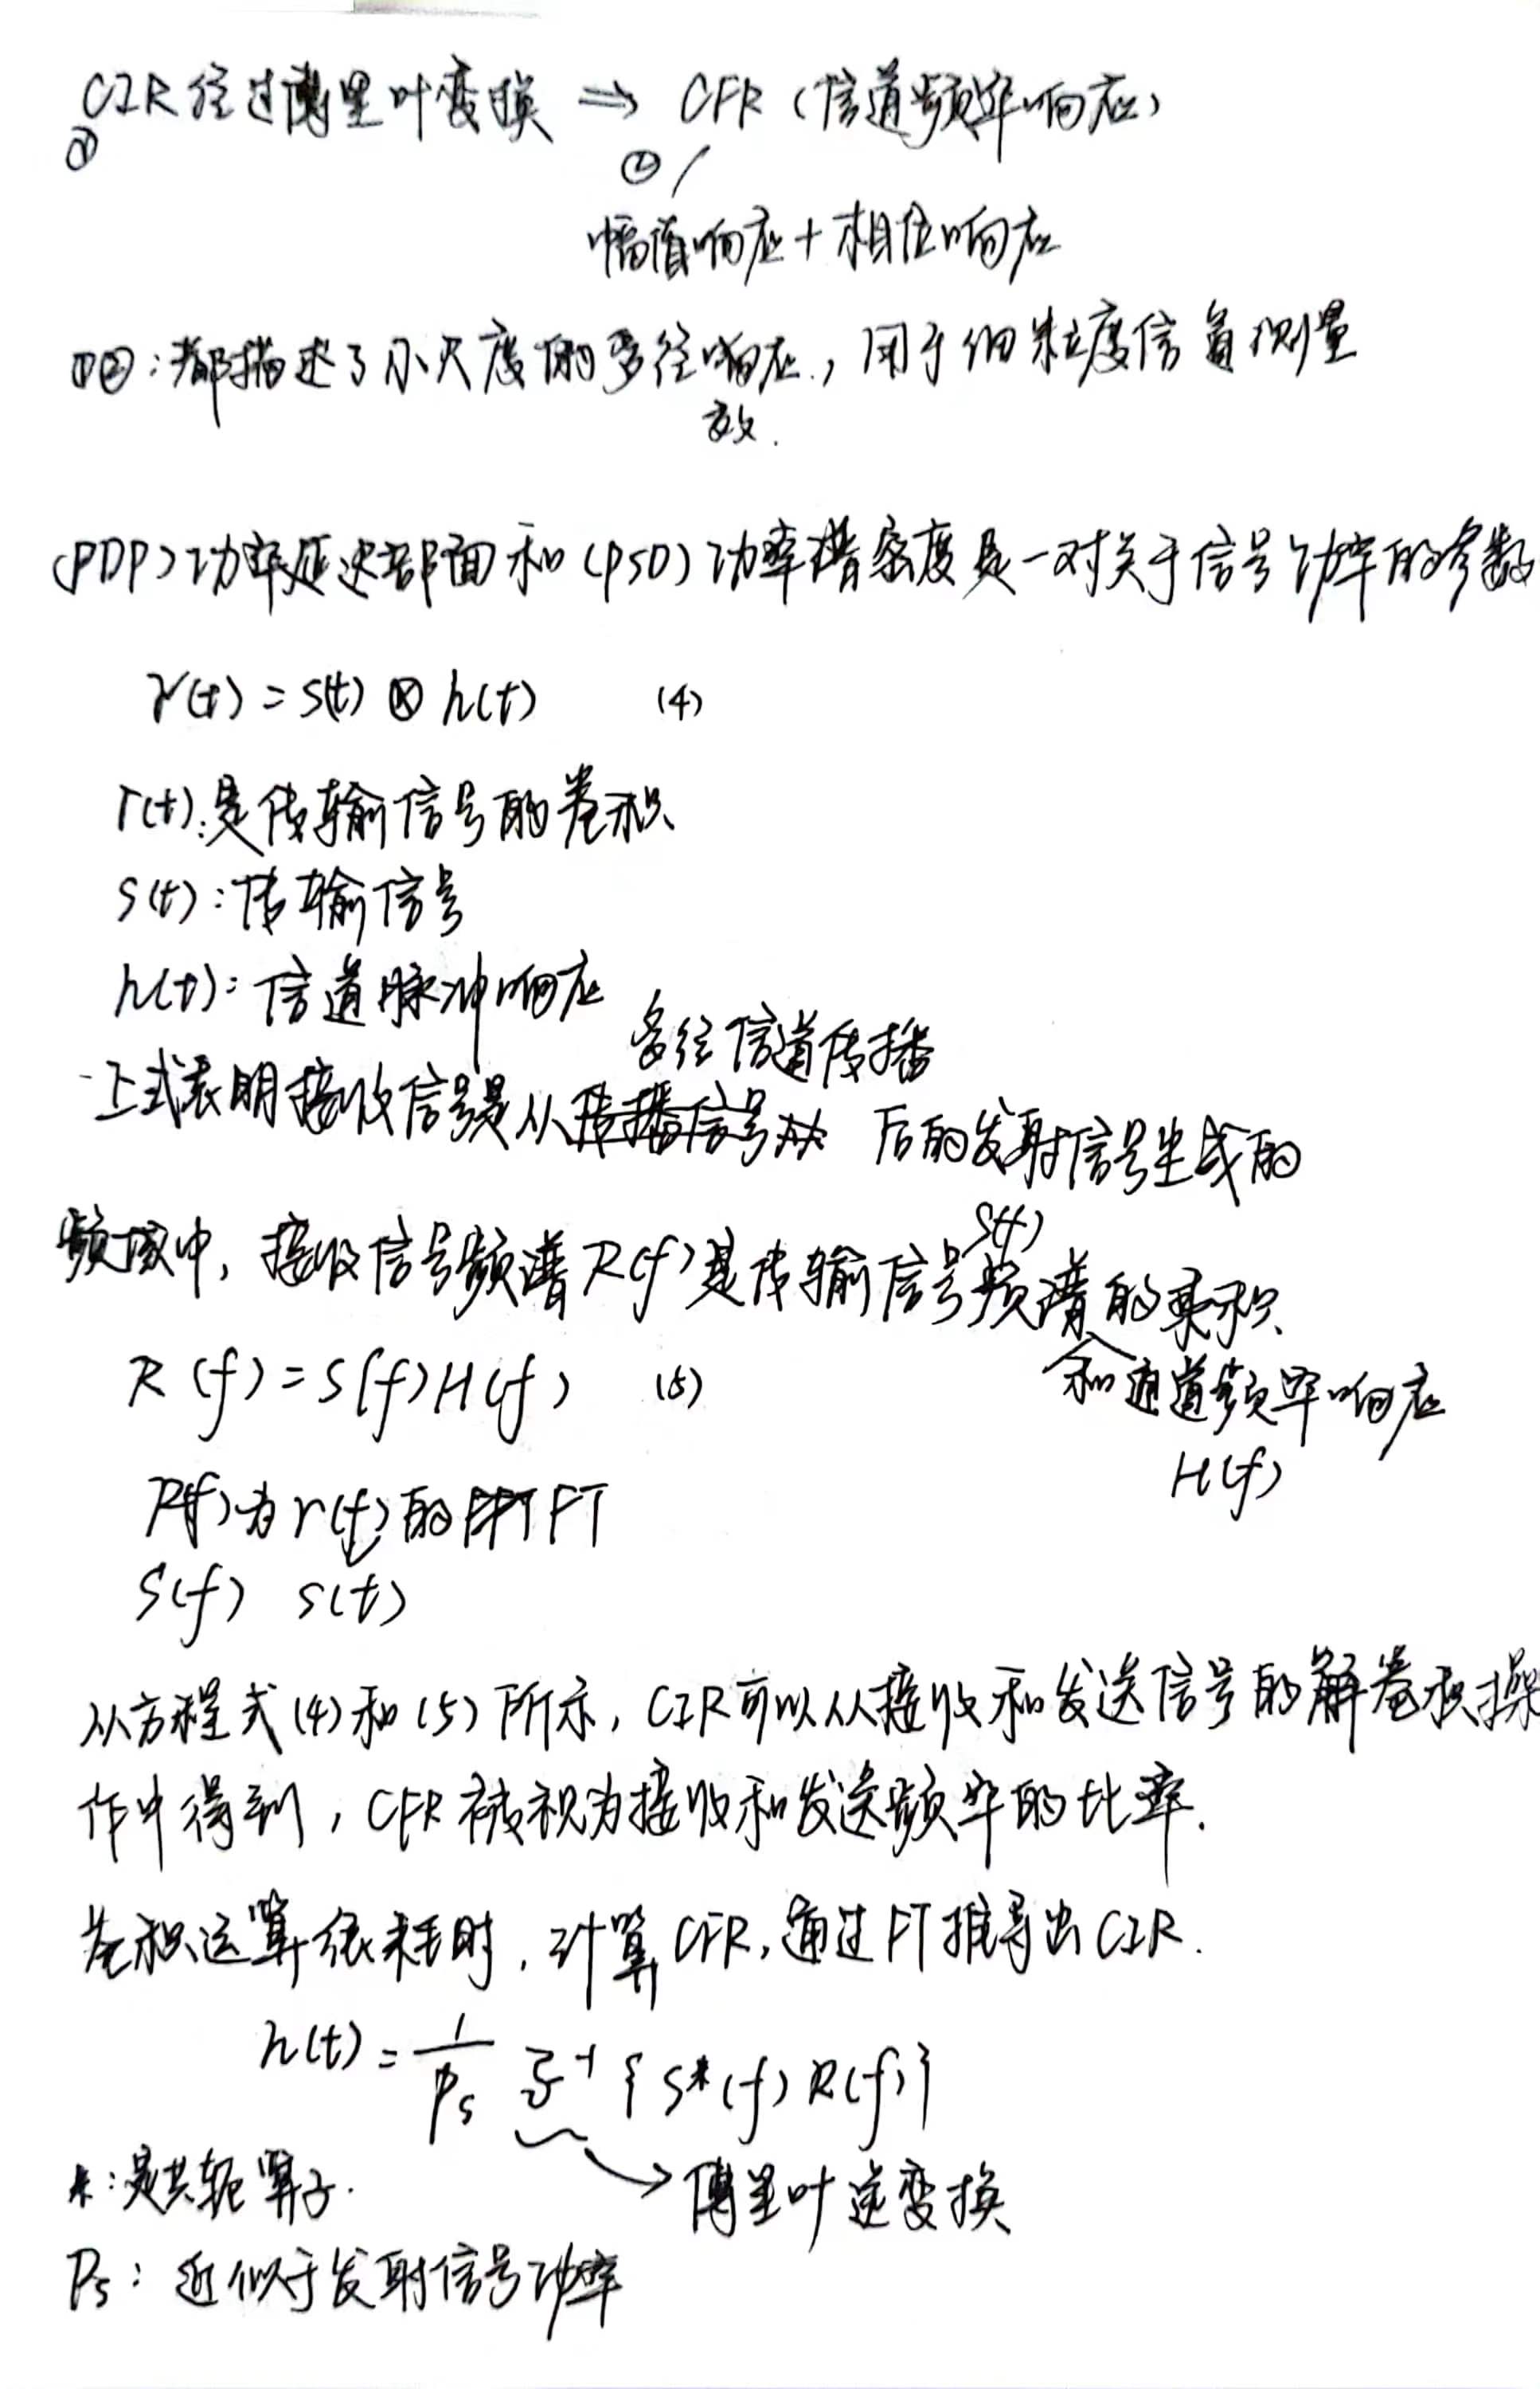 CIR经过傅里叶变换 ⇒ CFR（信道频率响应）
① ②
幅值响应+相位响应
①②：都描述了小尺度的多径响应，用于细粒度信道测量
效.
(PDP)功率延迟部面和(PSD)功率谱密度是一对关于信号功率的参数
r(t) = s(t) ⊗ h(t) (4)
r(t)：是传输信号的卷积
s(t)：传输信号
h(t)：信道脉冲响应
多径信道传播
上式表明接收信号是从 后的发射信号生成的
S(f)
频域中，接收信号频谱R(f)是传输信号频谱的乘积
和通道频率响应
R(f) = S(f)H(f) (5)
H(f)
R(f)为r(t)的FT
S(f) s(t)
从方程式(4)和(5)所示，CIR可以从接收和发送信号的解卷积操
作中得到，CFR被视为接收和发送频率的比率.
卷积运算很耗时，计算CFR，通过FT推导出CIR.
h(t) = 1/Ps 𝔉⁻¹{S*(f)R(f)}
*：是共轭算子.
傅里叶逆变换
Ps：近似于发射信号功率